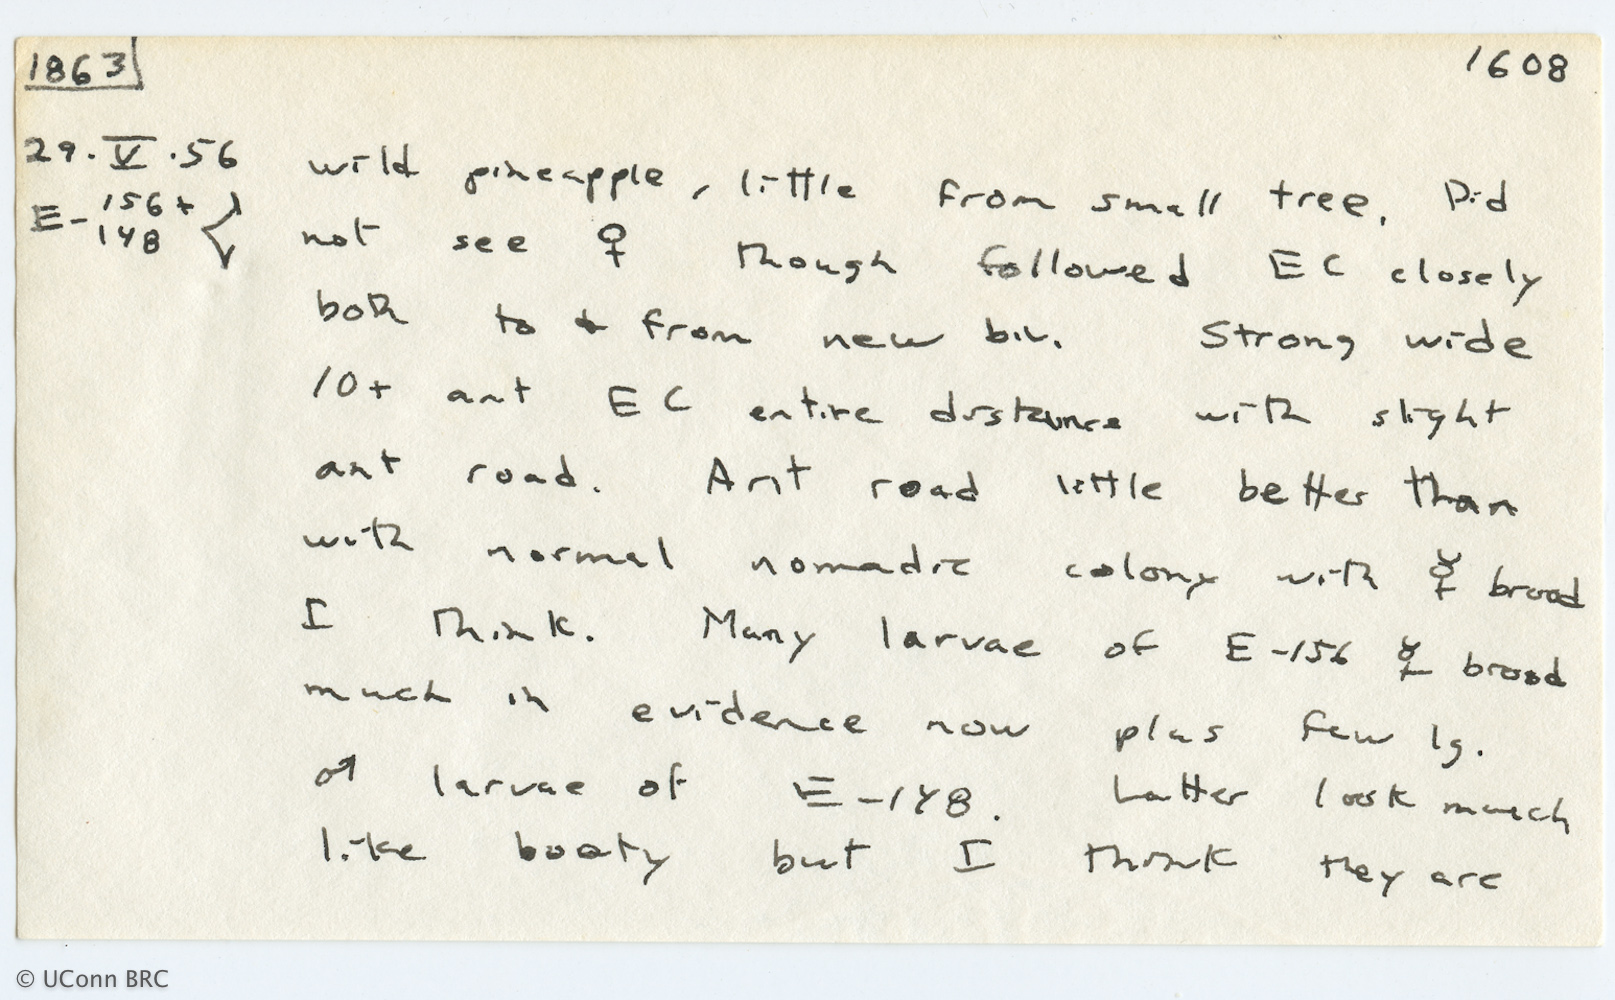 1863
1608
29.V.56
E-156+
148
wild pineapple, little from small tree. Did
not see ♀ though followed EC closely
both to & from new biv. Strong wide
10+ ant EC entire distance with slight
ant road. Ant road little better than
with normal nomadic colony with ☿ brood
I think. Many larvae of E-156 ☿ brood
much in evidence now plus few lg.
♂ larvae of E-148. Latter look much
like booty but I think they are
© UConn BRC